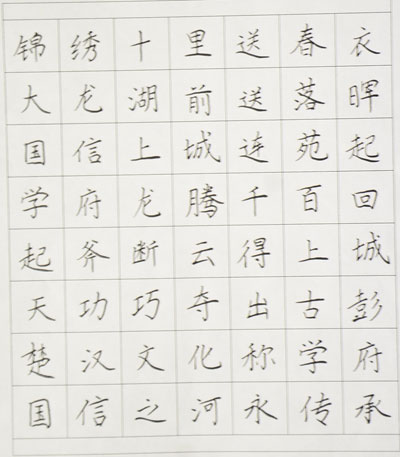 锦绣十里送春衣
大龙湖前送落晖
国信上城连苑起
学府龙腾千百回
起斧断云得上城
天功巧夺出古彭
楚汉文化称学府
国信之河永传承